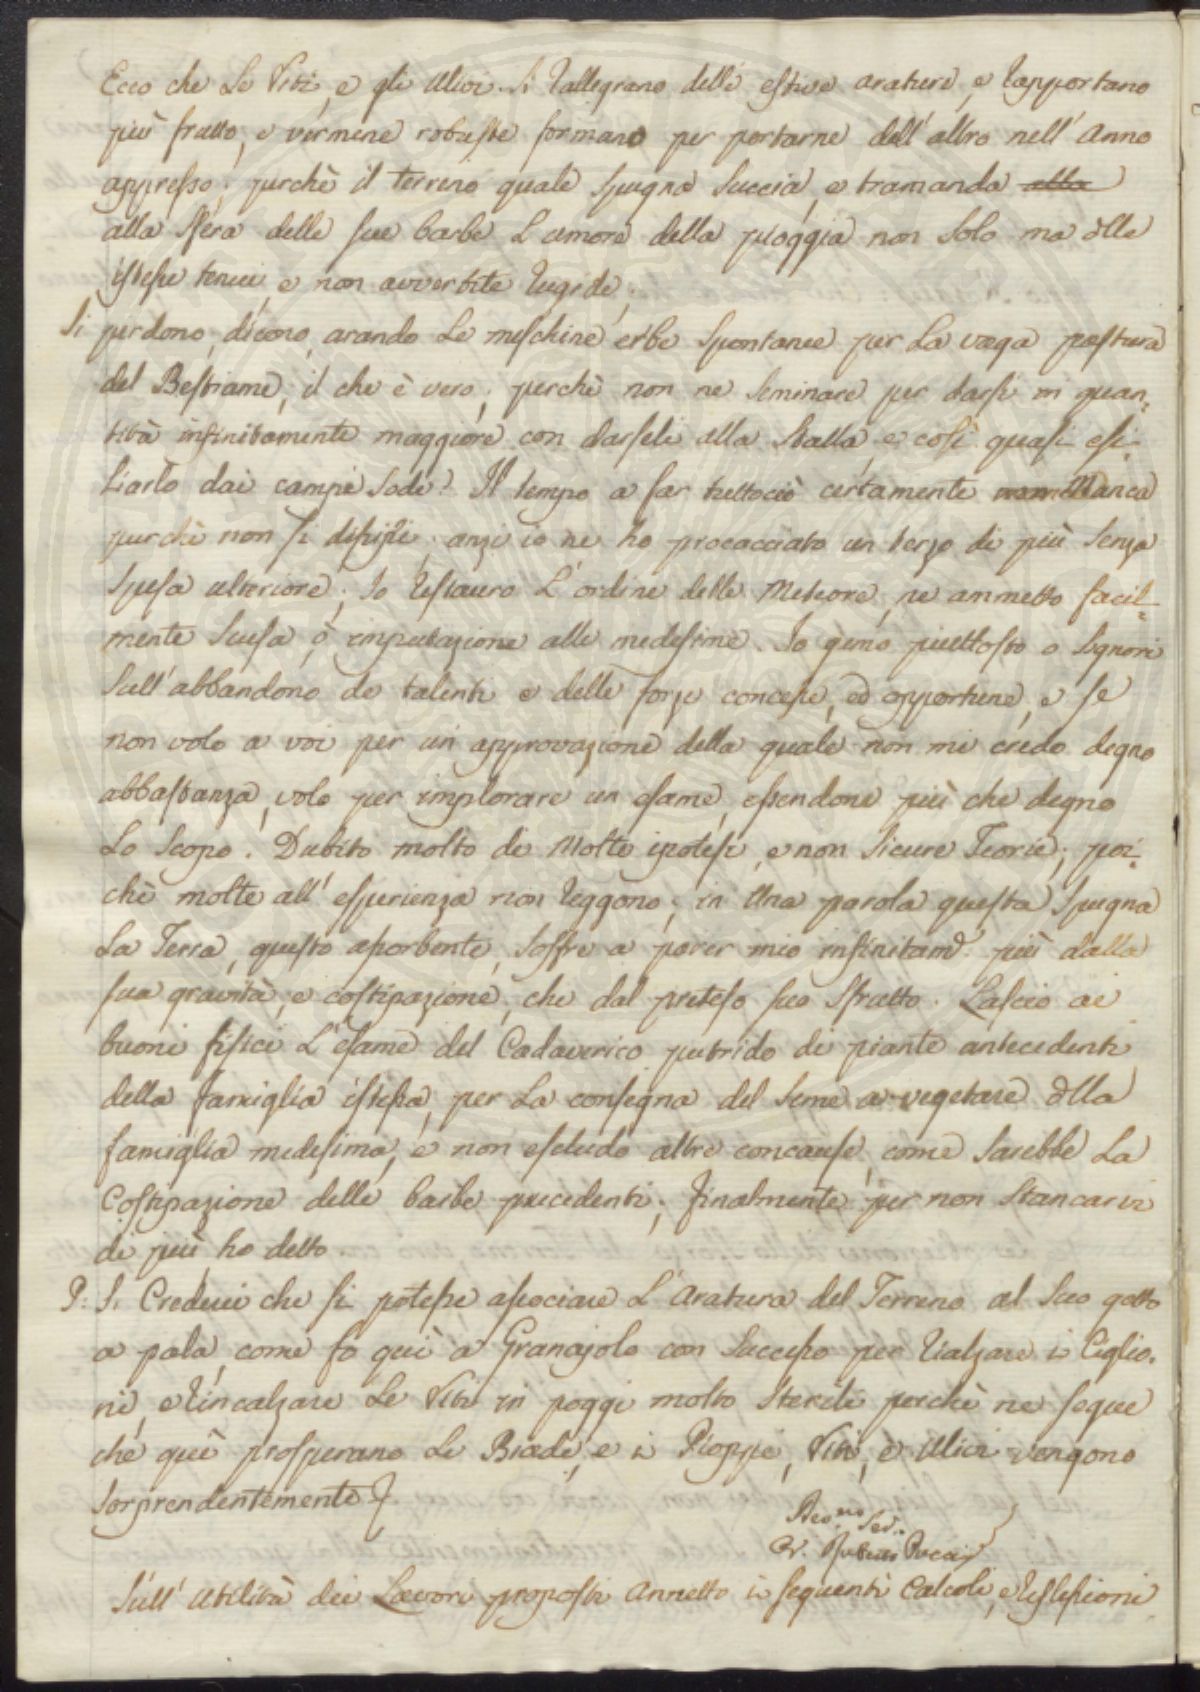 Ecco che le Viti, e gli Ulivi si rallegrano delle estive arature, e rapportano
più frutto, e vermene robuste formano per portarne dell'altro nell'Anno
appresso; purchè il terreno quale spugna succia, e tramanda alla
alla sfera delle sue barbe l'umore della pioggia non solo ma dlle
istesse tenui, e non avvertite rugide;
Si perdono, dicono, arando le meschine erbe spontanee per la vaga pastura
del Bestiame, il che è vero; perchè non ne seminare per darsi in quan-
tità infinitamente maggiore con darseli alla stalla, e così quasi esi-
liarlo dai campi sodi? Il tempo a far tuttociò certamente non Manca
purchè non si dissipi; anzi io ne ho procacciato un terzo di più senza
spesa ulteriore; Io restauro l'ordine delle Meteore, ne ammetto facil-
mente scusa, o imputazione alle medesime. Io gemo piuttosto o Signori
sull'abbandono de talenti e delle forze concesse, ed opportune, e se
non volo a voi per un approvazione della quale non mi credo degno
abbastanza, volo per implorare un esame, essendone più che degno
lo scopo. Dubito molto di Molte ipotesi, e non sicure Teorie; poi-
chè molte all'esperienza non reggono; in Una parola questa spugna
la Terra, questo assorbente, soffre a parer mio infinitam.e più dalla
sua gravità, e costipazione, che dal preteso suo sfrutto. Lascio ai
buoni fisici l'esame del Cadaverico putrido di piante antecedenti
della famiglia istessa, per la consegna del seme a vegetare dlla
famiglia medesima, e non escludo altre concause, come sarebbe la
Costipazione delle barbe precedenti; finalmente per non stancarvi
di più, ho detto
P: S. Crederei che si potesse associare l'Aratura del Terreno al suo getto
a pala, come fo quì a Granajolo con successo per rialzare i Ciglio-
ni, e rincalzare le Viti in poggi molto sterili perchè ne segue
che quì prosperano le Biade, e i Pioppi, Viti, e Ulivi vengono
sorprendentemente
Dev.mo Ser.
Cr. Pucci
Sull'Utilità dei Lavori proposti Annetto i seguenti Calcoli, e riflessioni